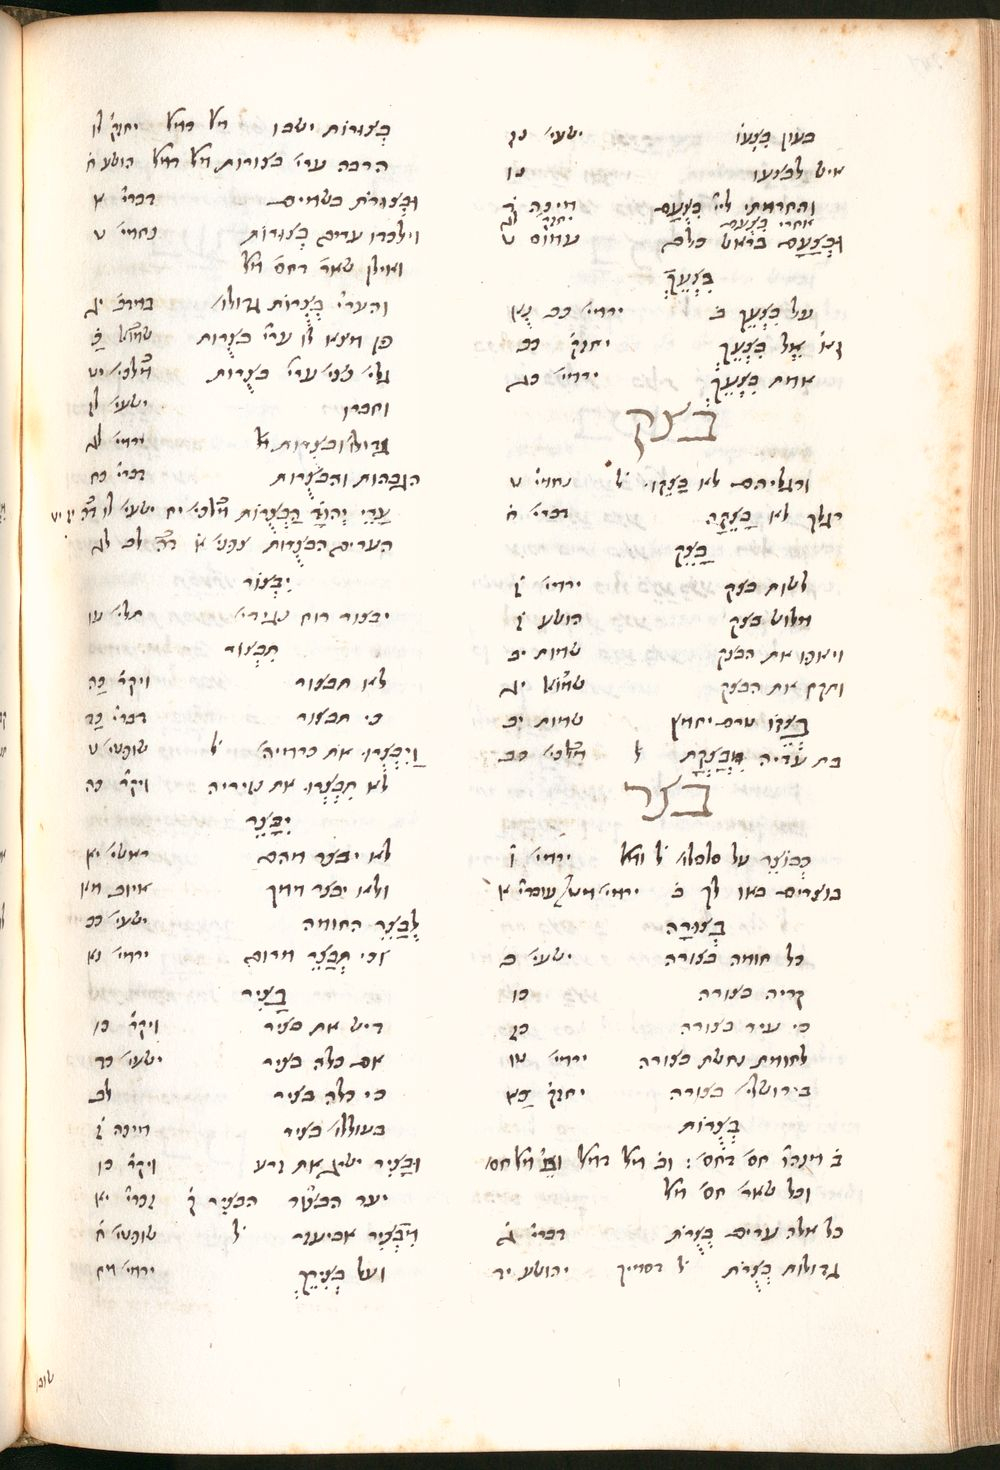 בעון בִּצְעוֹ ישעי׳ נז
איש לבצעו נו
והחרמתי ליי׳ בִּצְעָם מיכה ד
אחרי בצעם יחזק׳ לג
וּבְצַעַם בראש כלם עמוס ט
בִּצְעֶךָ
על בִּצְעֵךְ ב׳ ירמי׳ כב נא
אֶל בִּצְעֵךְ יחזק׳ כב
אמת בִּצְעֵךְ ירמי׳ נא
בצק
ורגליהם לא בָצֵקוּ ל׳ נחמי׳ ט
רגלך לא בָצֵקָה דברי׳ ח
בָּצֵק
לשות בצק ירמי׳ ז
מלוש בצק הושע ז
ויאפו את הבצק שמות יב
ותקח את הבצק שמו״א יג
בְּצֵקוֹ טרם יחמץ שמות יב
בת עדיה מִבָּצְקַת ל׳ מ״לכי׳ כב
בצר
כְּבוֹצֵר על סלסלו׳ ל׳ ומל׳ ירמי׳ ו׳
בוצרים באו לך ב׳ ירמי׳ מט עובדי׳ א
בְּצוּרָה
כל חומה בצורה ישעי׳ ב
קריה בצורה כו
כי עיר בצורה כז
לחומת נחשת בצורה ירמי׳ טו
בירושל׳ בצורה יחזק׳ כא
בְּצֻרוֹת
וכל שאר׳ חס׳ מל׳
כל אלה ערים בְּצֻרֹת דברי׳ ג׳
גדולות בְּצֻרוֹת ל׳ דסמיך יהושע יד
בְּצוּרוֹת ישבו מל׳ דמל׳ יחזק׳ לו
הרבה ערי׳ בצורות מל׳ דמל׳ הושע ח
וּבְצוּרֹת בשמים דברי׳ א
וילכדו ערים בְּצוּרוֹת נחמי׳ ט
ואילן שאר׳ דחס׳ מל׳
והערי׳ בְּצֻרוֹת גדולו׳ במדב׳ יג
פן מצא לו ערי׳ בצֻרות שמ״וא כ׳
גלי׳ נצי׳ ערי׳ בצֻרות מ״לכי׳ יט
וחברו ישעי׳ לז
גדולו׳ ובצֻרות ירמי׳ לג
הגבהות והבצֻרות דברי׳ כח
עָרֵי יְהוּדָה הַבְּצֻרוֹת מ״לכי׳ יח ישעי׳ לו
הערים הבצֻרות צפני׳ א׳ ד״ה לב לג
יִבְצוֹר
יבצור רוח נגידי׳ תלי׳ עו
תִבְצוֹר
לא תבצור ויקר׳ כה
כי תבצור דברי׳ כד
וַיִּבְצְרוּ את כרמיה׳ ל׳ שופטי׳ ט
לא תִבְצְרוּ את נזיריה ויקר׳ כה
יִבָּצֵר
לא יבצר מהם ראשי׳ יא
ולא יבצר ממך איוב מא
לְבַצֵּר החומה ישעי׳ כב
וכי תְבַצֵּר מרום ירמי׳ נא
בָּצִיר
דיש את בציר ויקר׳ כו
אם כלה בציר ישעי׳ כד
כי כלה בציר לב
בעוללו׳ בציר מיכה ז
וּבָצִיר ישיג את זרע ויקר׳ כו
יער הבצור הבציר ק׳ זכרי׳ יא
מִבְּצִיר אביעזר ל׳ שופטי׳ ח
ועל בְּצִירֵךְ ירמי׳ מח